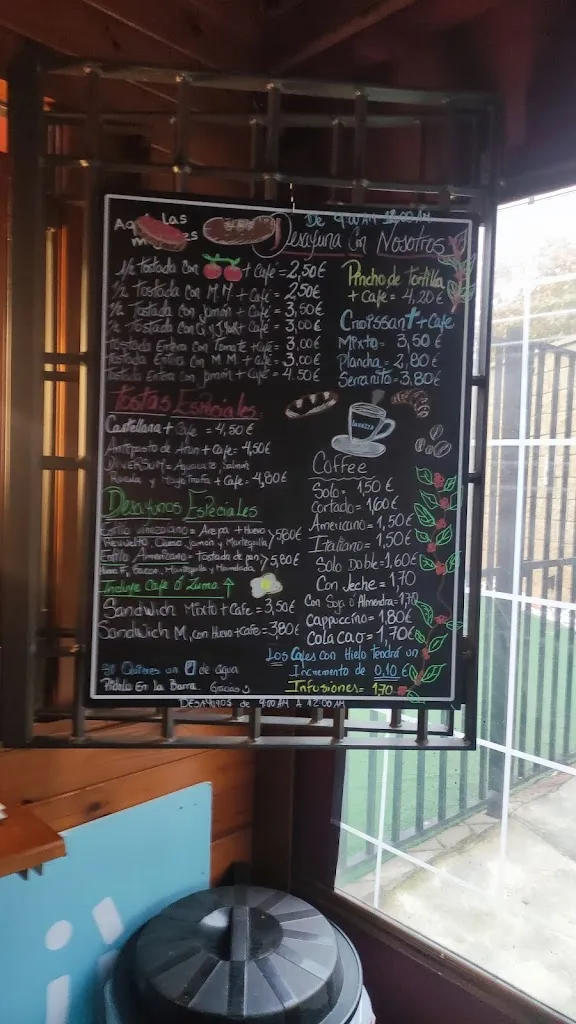 Las
De 9:00 AM 12:00 AM
Desayuna Con Nosotros
1/2 Tostada Con + Café = 2,50€
1/2 Tostada Con M.M + Café = 2,50€
1/2 Tostada Con Jamón + Café = 3,50€
1/2 Tostada Con + Café = 3,00€
Tostada Entera Con Tomate + Café = 3,00€
Tostada Entera Con M.M + Café = 3,00€
Tostada Entera Con Jamón + Café = 4.50€
Tostas Especiales
Castellana + Café = 4,50€
Antepasto de Atún + Café = 4,50€
Aguacate, Salmón
Rúcula y + Café = 4,80€
Desayunos Especiales
Estilo Venezolano = Arepa + Huevo
Revuelto Queso Jamón y Mantequilla > 5,80€
Estilo Americano = Tostada de pan
Huevo F, Bacon, Mantequilla y Mermelada > 5,80€
Incluye Café ó Zumo
Sandwich Mixto + Cafe = 3,50€
Sandwich M. con Huevo + Cafe = 3,80€
Si Quieres un de agua
Pídelo En la Barra. Gracias
Pincho de Tortilla
+ Cafe = 4,20€
Croissant + Cafe
Mixto = 3,50€
Plancha = 2,80€
Serranito = 3,80€
LAVAZZA
Coffee
Solo = 1,50€
Cortado = 1,60€
Americano = 1,50€
Italiano = 1,50€
Solo Doble = 1,60€
Con Leche = 1,70
Con Soja ó Almendra = 1,70
Cappuccino = 1,80€
Cola cao = 1,70€
Los Cafes con Hielo tendrá un
Incremento de 0,10€
Infusiones = 1,70
DESAYUNOS de 9:00 AM A 12:00 AM